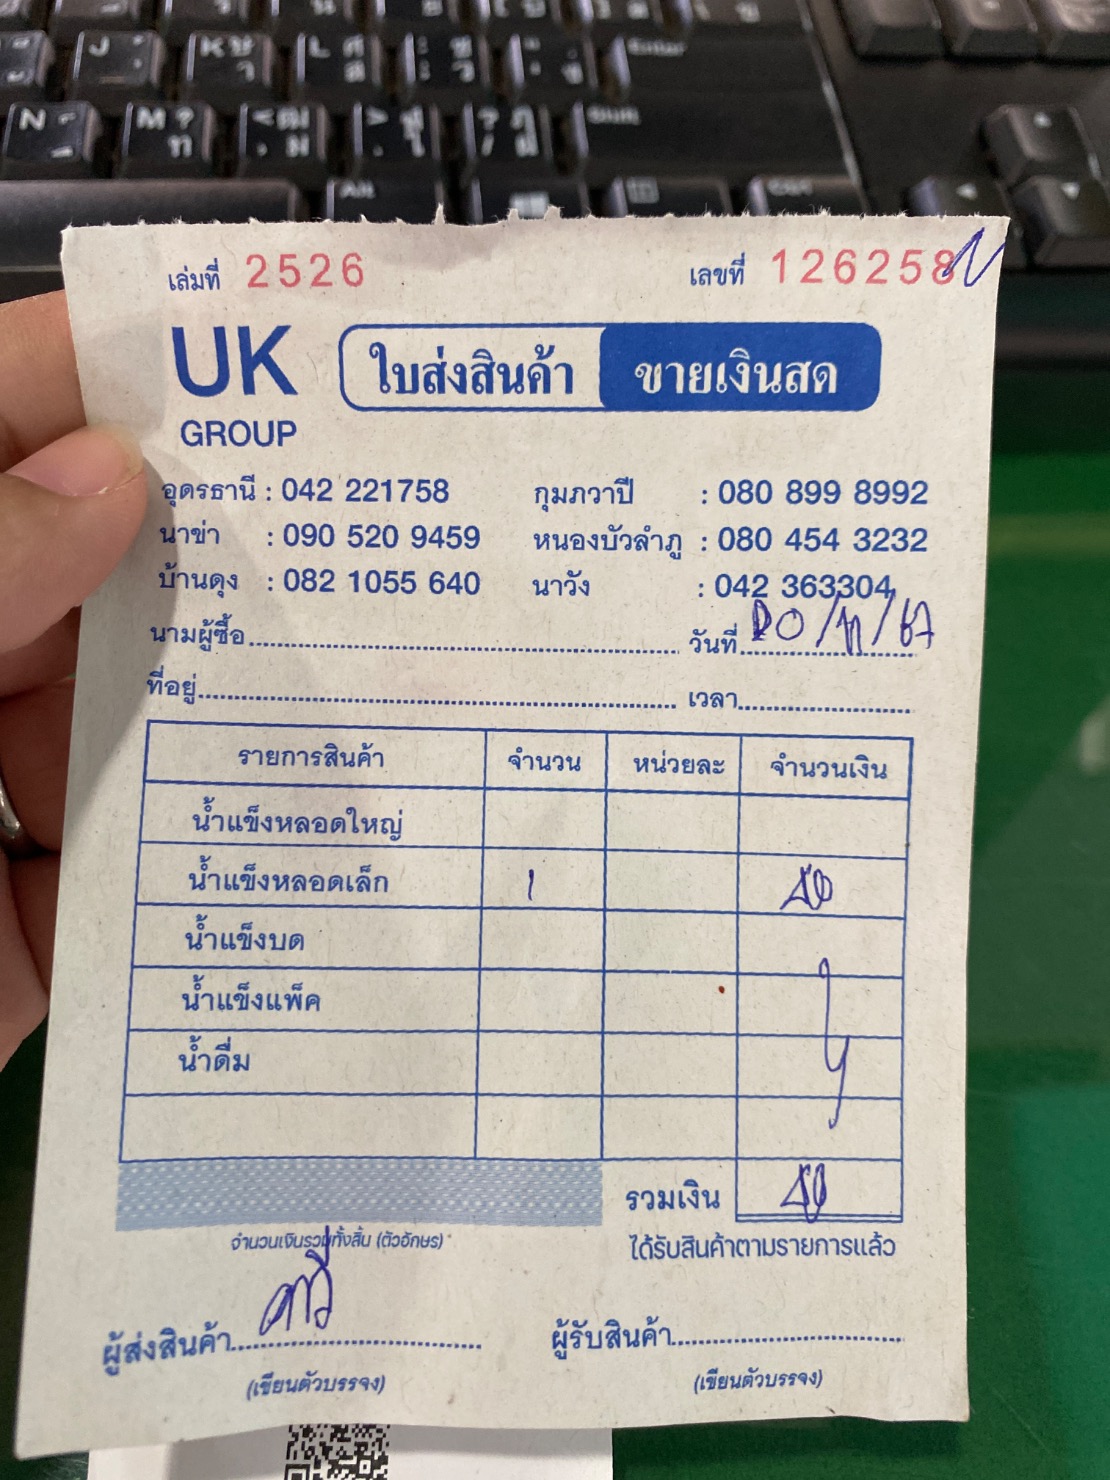 เล่มที่ 2526 เลขที่ 126258
UK GROUP
ใบส่งสินค้า ขายเงินสด
อุดรธานี : 042 221758 กุมภวาปี : 080 899 8992
นาข่า : 090 520 9459 หนองบัวลำภู : 080 454 3232
บ้านดุง : 082 1055 640 นาวัง : 042 363304
นามผู้ซื้อ วันที่
ที่อยู่ เวลา
รายการสินค้า จำนวน หน่วยละ จำนวนเงิน
น้ำแข็งหลอดใหญ่
น้ำแข็งหลอดเล็ก 1
น้ำแข็งบด
น้ำแข็งแพ็ค
น้ำดื่ม
รวมเงิน
จำนวนเงินรวมทั้งสิ้น (ตัวอักษร) ได้รับสินค้าตามรายการแล้ว
ผู้ส่งสินค้า ผู้รับสินค้า
(เขียนตัวบรรจง) (เขียนตัวบรรจง)
J
K
L
Enter
N
M ?
Shift
Alt
Ctrl